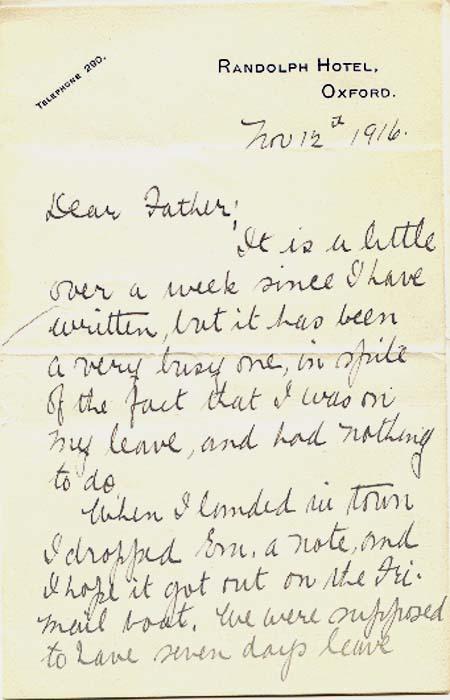 TELEPHONE 290.
RANDOLPH HOTEL,
OXFORD.
Nov 12th 1916.
Dear Father;
It is a little
over a week since I have
written, but it has been
a very busy one, in spite
of the fact that I was on
my leave, and had nothing
to do.
When I landed in town
I dropped Ern. a note, and
I hope it got out on the Fri.
mail boat. We were supposed
to have seven days leave